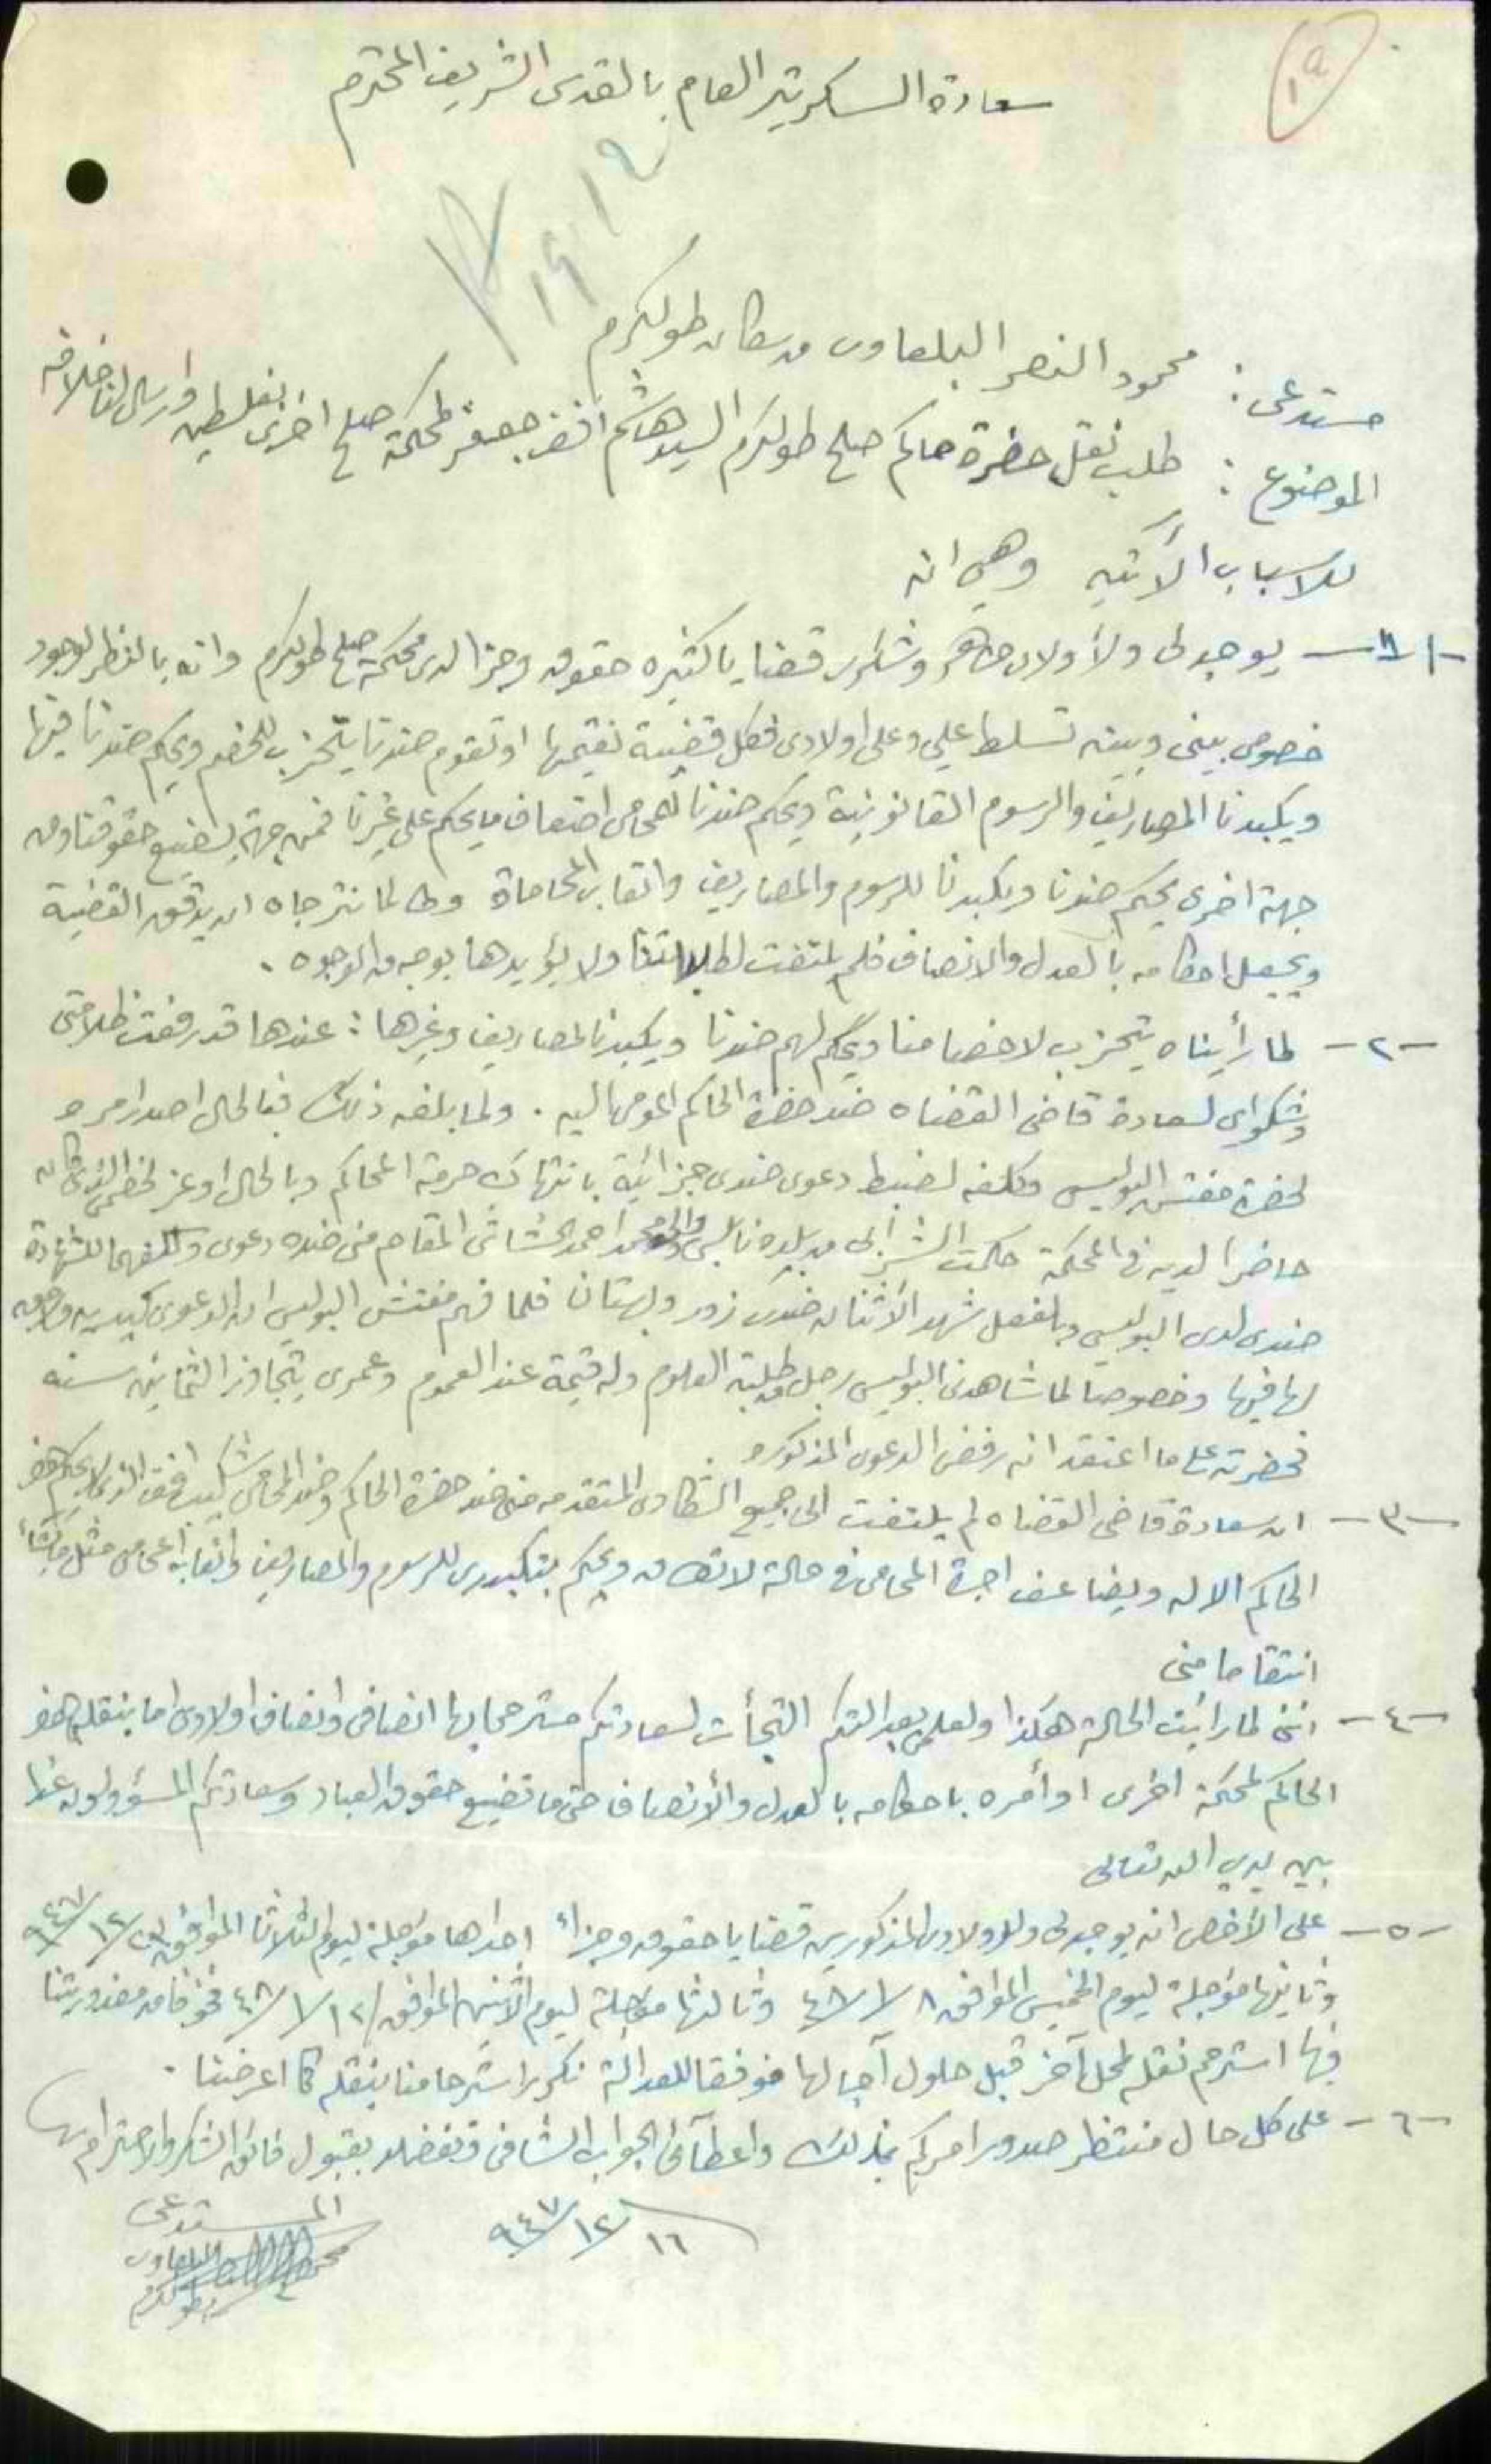 ١٩
سعادة السكرتير العام بالقدس الشريف المحترم
مستدعي : محمود النصر البلعاوي من سكان طولكرم
الموضوع : طلب نقل حضرة حاكم صلح طولكرم السيد هاشم افندي لمحكمة صلح اخرى بفلسطين وارسال لنا خلافه
للاسباب الآتيه وهي انه
-١- يوجد لي ولأولادي وشاكر قضايا كثيره حقوق وجزا لدى محكمة صلح طولكرم وانه بالنظر لوجود
خصومه بيني وبينه تسلط علي وعلى اولادي فكل قضية نقيمها او تقوم ضدنا يتحزب للخصم ويحكم ضدنا فيها
ويكبدنا المصاريف والرسوم القانونية ويحكم ضدنا للمحامي اضعاف ما يحكم على غيرنا فمن جهة يضيع حقوقنا ومن
جهة اخرى يحكم ضدنا ويكبدنا للرسوم والمصاريف واتعاب المحاماة وطالما نترجاه ان يدقق القضية
ويجعل احكامه بالعدل والانصاف فلم يلتفت لطلباتنا ولا يؤيدها بوجه من الوجوه .
-٢- لما رأيناه يتحزب لاخصامنا ويحكم لهم ضدنا ويكبدنا المصاريف وغيرها : عندها قد رفعت ظلامتي
وشكواي لسعادة قاضي القضاه ضد حضرة الحاكم المومى اليه . ولما بلغه ذلك فبالحال اصدر امره
لحضرة مفتش البوليس وكلفه لضبط دعوى ضدي جزائية بانتهاك حرمة المحاكم وبالحال اوعز لخصمي الذي كان
حاضرا لديه في المحكمة حكمت الشرابي من بلدة نابلس احمد المقام مني ضده دعوى وكلفهما للشهادة
ضدي لدى البوليس وبالفعل شهد الاثنان ضدي زور وبهتان فلما فهم مفتش البوليس ان الدعوى كيديه
لها فيها وخصوصا لما شاهدني البوليس رجل من طلبة العلوم وله قيمة عند العموم وعمري يتجاوز الثمانين سنه
فحضرته على ما اعتقد انه رفض الدعوى المذكوره
-٣- ان سعادة قاضي القضاه لم يلتفت الى جميع الشكاوى المتقدمه مني ضد حضرة الحاكم وضد المحامي شكيب افندي الذي
الحاكم الا له ويضاعف اجرة المحامي في حالة لا تطاق ويحكم بتكبيدي للرسوم والمصاريف واتعاب المحامي مثل ما يشاء
انتقاما مني
-٤- انني لما رأيت الحالة هكذا ولعلمي بعدالتكم التجأت لسعادتكم مسترحما بها انصافي وانصاف اولادي اما بنقل حضرة
الحاكم لمحكمة اخرى او أمره باحكامه بالعدل والأنصاف حتى ما تضيع حقوق العباد وسعادتكم المسؤولون عنها
بين يدي الله تعالى
-٥- على الأخص انه يوجد لي ولاولادي المذكورين قضايا حقوق وجزاء احداها مؤجلة ليوم الثلاثا الموافق /١٢/٩٤٧
وثانيها مؤجلة ليوم الخميس الموافق ٨/١/٤٨ وثالثها مؤجلة ليوم الأثنين الموافق ١٢/١/٤٨ فخوفا من مغدوريتنا
فيها استرحم نقله لمحل آخر قبل حلول آجالها فوفقا للعدالة نكرر استرحامنا بنقله كما اعرضنا .
-٦- على كل حال منتظر صدور امركم بذلك واعطآئي الجواب الشافي وتفضلوا بقبول فائق الشكر والاحترام
١٦/١٢/٩٤٧
المستدعي
البلعاوي